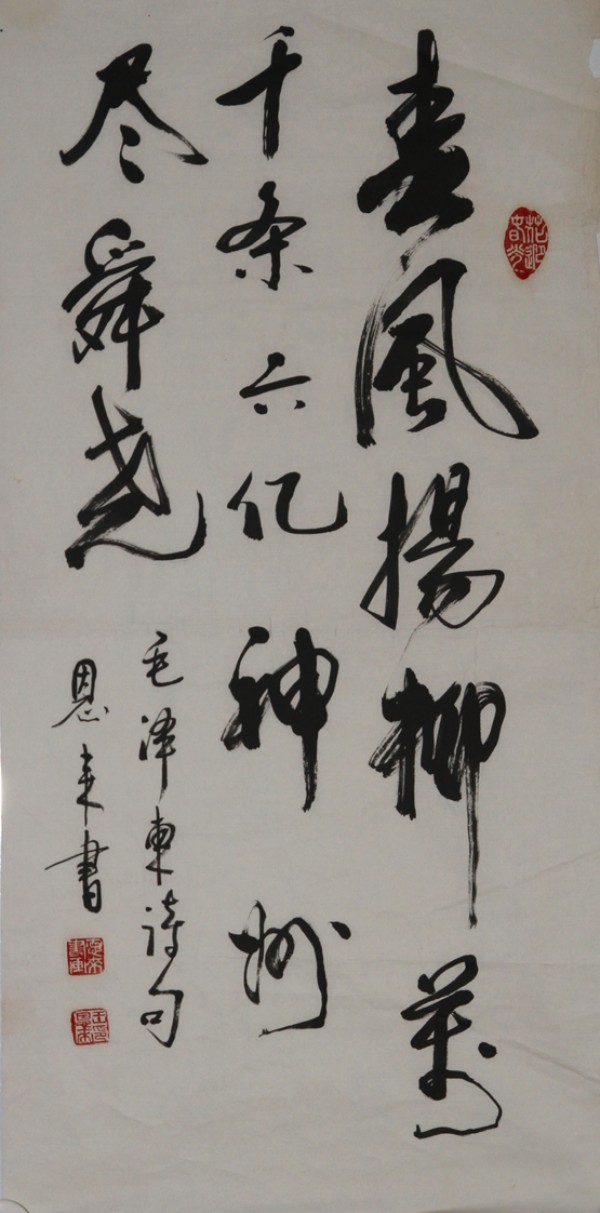 春風揚柳萬
千条六亿神州
尽舜尧
毛泽東詩句
恩来書